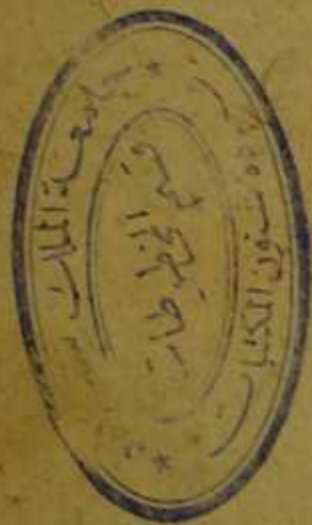 جامعة الملك
قسم المخطوطات
شئون المكتبات